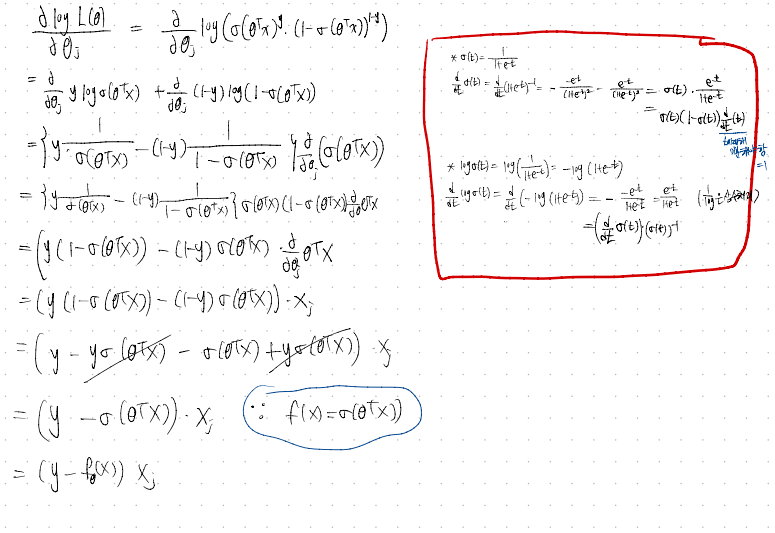 ∂ log L(θ) / ∂θj = ∂/∂θj log(σ(θᵀx)^y · (1-σ(θᵀx))^(1-y))
= ∂/∂θj y log σ(θᵀx) + ∂/∂θj (1-y) log(1-σ(θᵀx))
= {y · 1/σ(θᵀx) - (1-y) 1/(1-σ(θᵀx))} ∂/∂θj (σ(θᵀx))
= {y 1/σ(θᵀx) - (1-y) 1/(1-σ(θᵀx))} σ(θᵀx)(1-σ(θᵀx)) ∂/∂θj θᵀx
= (y(1-σ(θᵀx)) - (1-y)σ(θᵀx) · ∂/∂θj θᵀx
= (y(1-σ(θᵀx)) - (1-y)σ(θᵀx)) · xj
= (y - yσ(θᵀx) - σ(θᵀx) + yσ(θᵀx)) · xj
= (y - σ(θᵀx)) · xj
∵ f(x) = σ(θᵀx))
= (y - fθ(x)) xj
* σ(t) = 1/(1+e^-t)
d/dt σ(t) = d/dt (1+e^-t)^-1 = - -e^-t/(1+e^-t)² = e^-t/(1+e^-t)² = σ(t) · e^-t/(1+e^-t)
= σ(t)(1-σ(t)) d/dt (t)
=1
* log σ(t) = log(1/(1+e^-t)) = -log(1+e^-t)
d/dt log σ(t) = d/dt (-log(1+e^-t)) = - -e^-t/(1+e^-t) = e^-t/(1+e^-t)
= (d/dt σ(t)) (σ(t))^-1